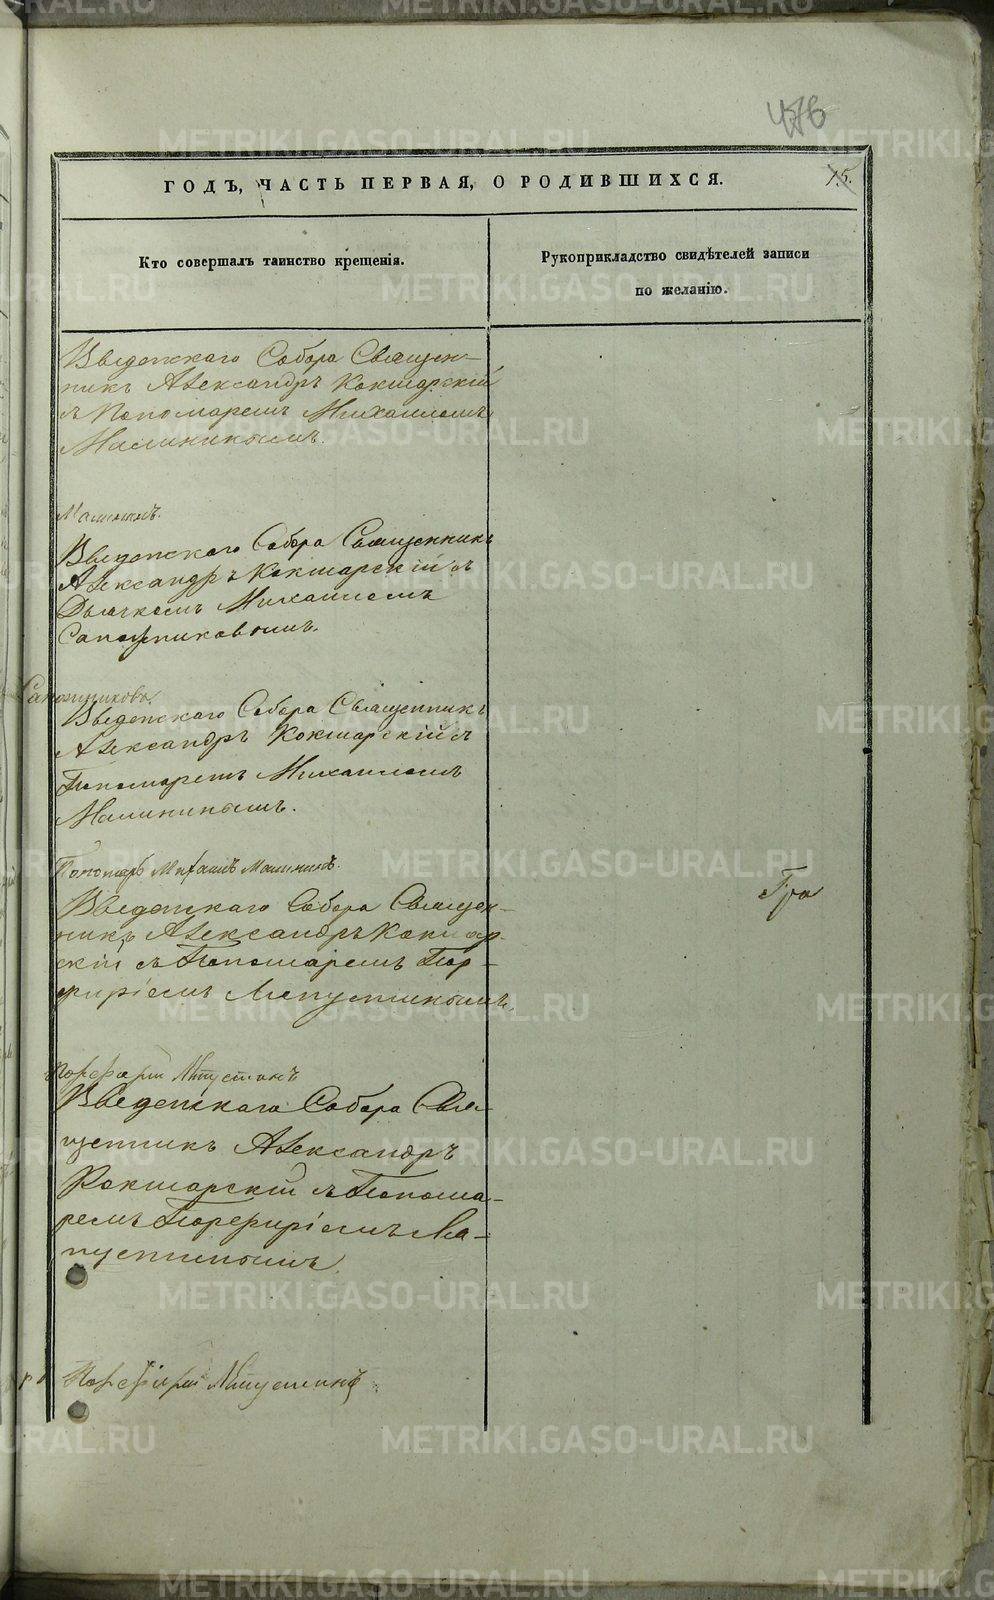 476
ГОДЪ, ЧАСТЬ ПЕРВАЯ, О РОДИВШИХСЯ.
15.
Кто совершалъ таинство крещенія.
Рукоприкладство свидѣтелей записи
по желанію.
Введенскаго Собора Священ-
никъ Александръ Кокшарскій
съ Пономаремъ Михаиломъ
Малининымъ.
Малининъ.
Введенскаго Собора Священникъ
Александръ Кокшарскій съ
Дьячкомъ Михаиломъ
Сапожниковымъ.
Сапожниковъ.
Введенскаго Собора Священникъ
Александръ Кокшарскій съ
Пономаремъ Михаиломъ
Малининымъ.
Пономарь Михаилъ Малининъ.
Введенскаго Собора Священ-
никъ Александръ Кокшар-
скій съ Пономаремъ Пор-
фиріемъ Лапустинымъ.
Гра
Порфирій Лапустинъ
Введенскаго Собора Свя-
щенникъ Александръ
Кокшарскій съ Понома-
ремъ Порфиріемъ Ла-
пустинымъ
Порфирій Лапустинъ
METRIKI.GASO-URAL.RU